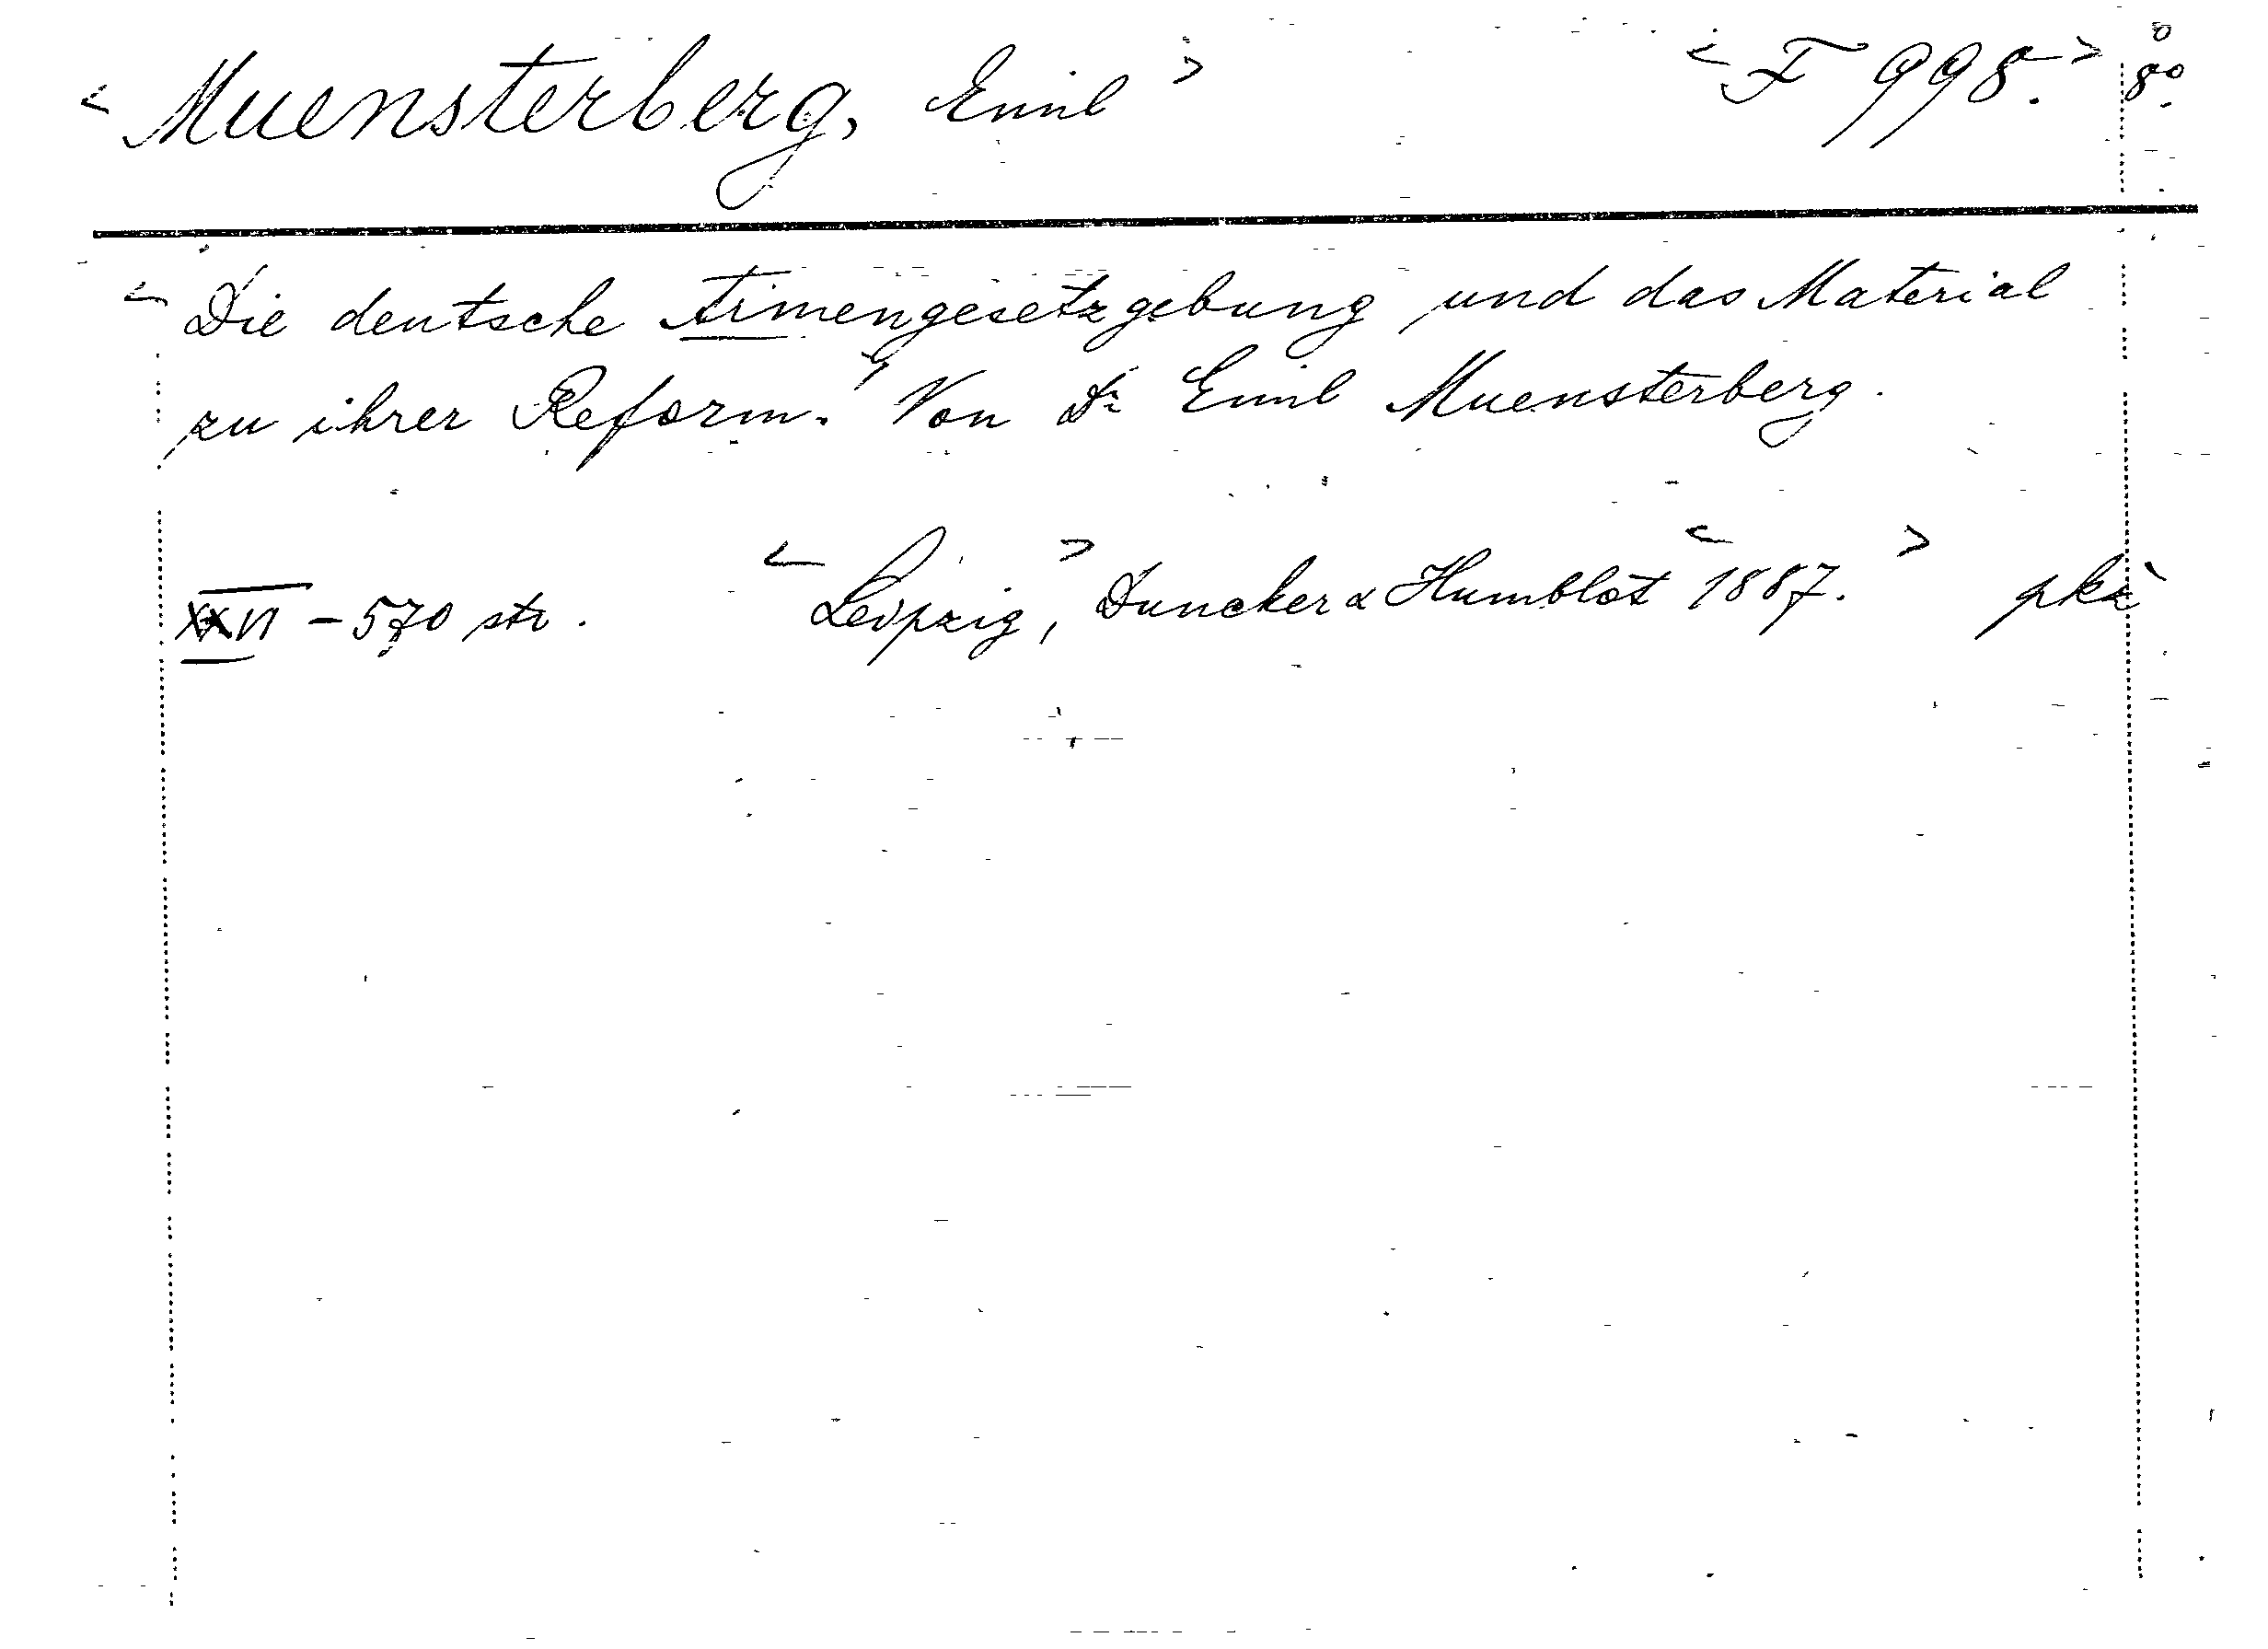 < Muensterberg, Emil > < F 998. > 8º.
< Die deutsche Armengesetzgebung und das Material
zu ihrer Reform. > Von Dr Emil Muensterberg.
XXVI - 570 str. < Leipzig, > Duncker & Humblot < 1887. >